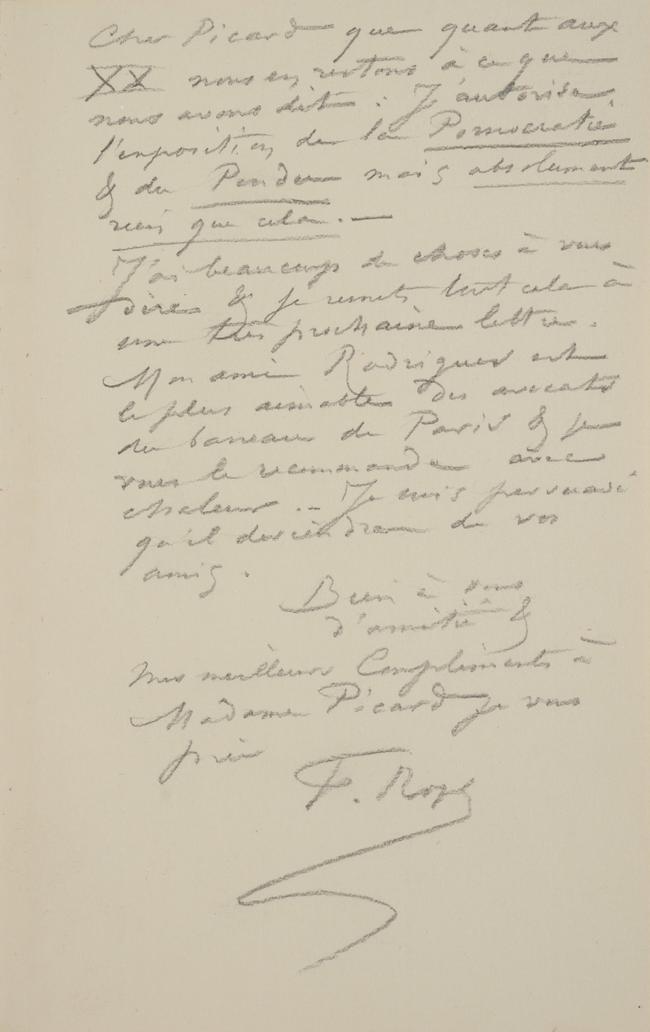 Cher Picard que quant aux
XX nous en restons à ce que
nous avons dit : J'autorise
l'exposition de la Pornocratie
& du Pendu mais absolument
rien que cela. —
J'ai beaucoup de choses à vous
dire & je remets tout cela à
une très prochaine lettre.
Mon ami Rodrigues est
le plus aimable des avocats
du barreau de Paris & je
vous le recommande avec
chaleur. – Je suis persuadé
qu'il deviendra de vos
amis.
Bien à vous
d'amitié &
mes meilleurs Compliments à
Madame Picard je vous
prie
F. Rops